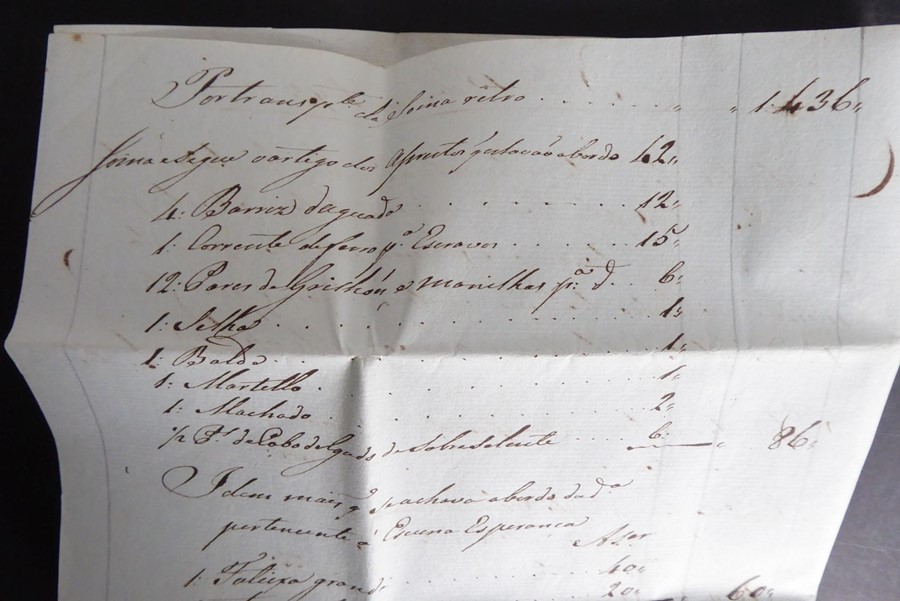 Por transpte da Soma retro . . . . . . „ „ 1:436„
Soma e segue o artigo dos aprestos q' estavão a bordo 42„
4: Barriz d'aguada . . . . . . . 12„
1: Corrente de ferro pa. Escravos . . . . . 15„
12: Pares de Grilhões e manilhas pa. d. . . 6„
1: Selha . . . . . . . . . . 1„
1: Balde . . . . . . . . . 1„
1: Martello . . . . . . . . 1„
1: Machado . . . . . . . . 2„
1/2 Ps. de Cabo delgado de Sobreselente . . . . 6„ „ 86„
Idem mais q' se achava a bordo da da
pertencente á Escuna Esperança
1: grande . . . . . . . 40„
20„ 60„